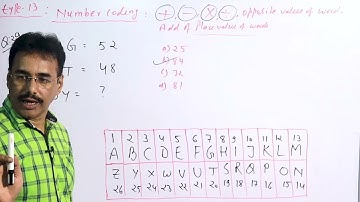 Type-13 : Number Coding: + , - , × , ÷ , opposite value of word.
Add of place value of words
Q.29
G = 52
T = 48
Y = ?
a) 25
b) 54
c) 72
d) 81
1 2 3 4 5 6 7 8 9 10 11 12 13
A B C D E F G H I J K L M
Z Y X W V U T S R Q P O N
26 25 24 23 22 21 20 19 18 17 16 15 14